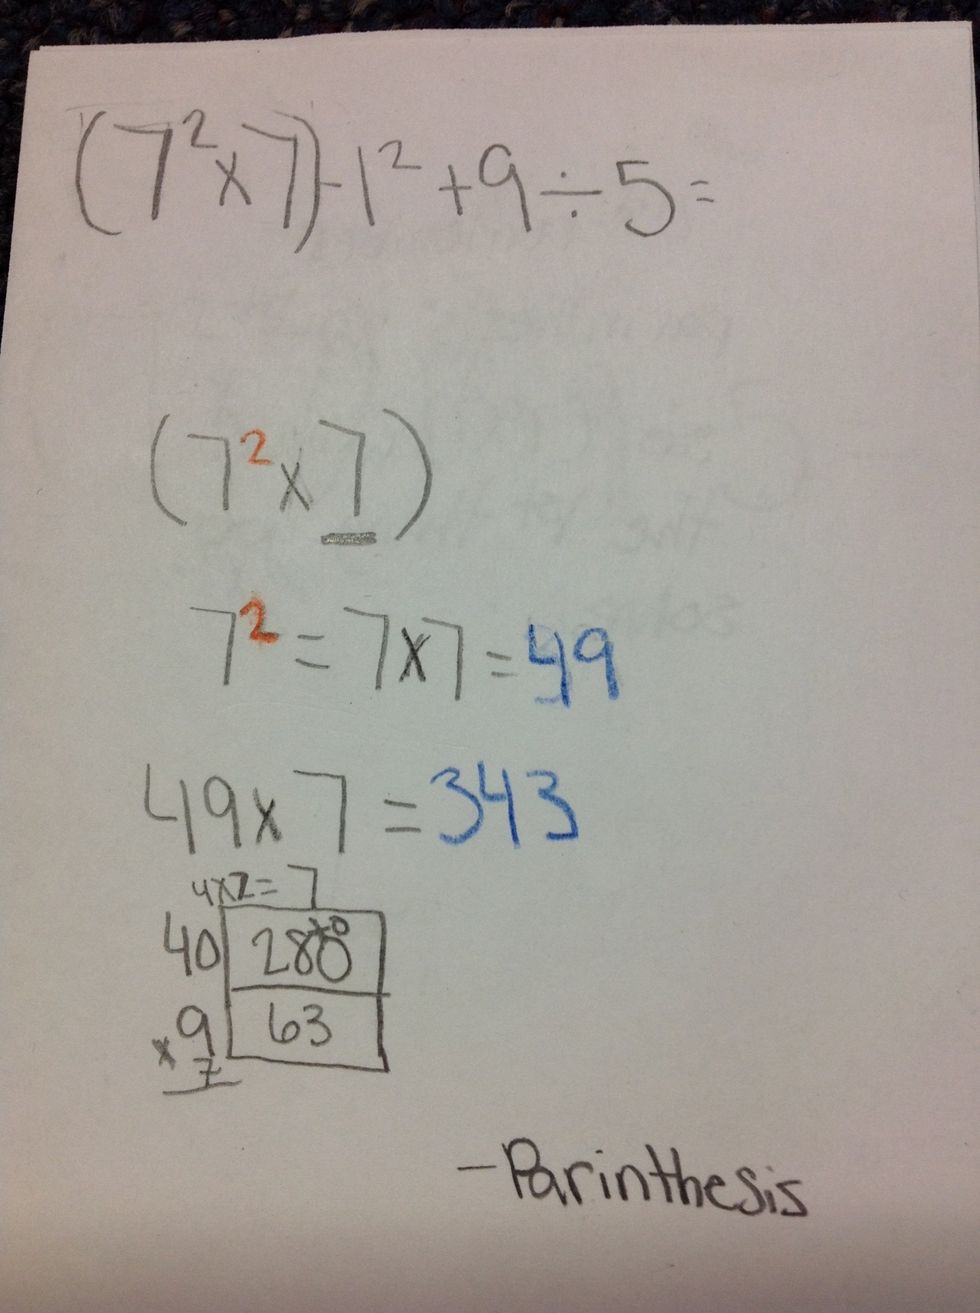 (7²x7)-1²+9÷5=
(7²x7)
7²=7x7=49
49x7=343
4x7=7
40 280
x9 63
7
-Parinthesis